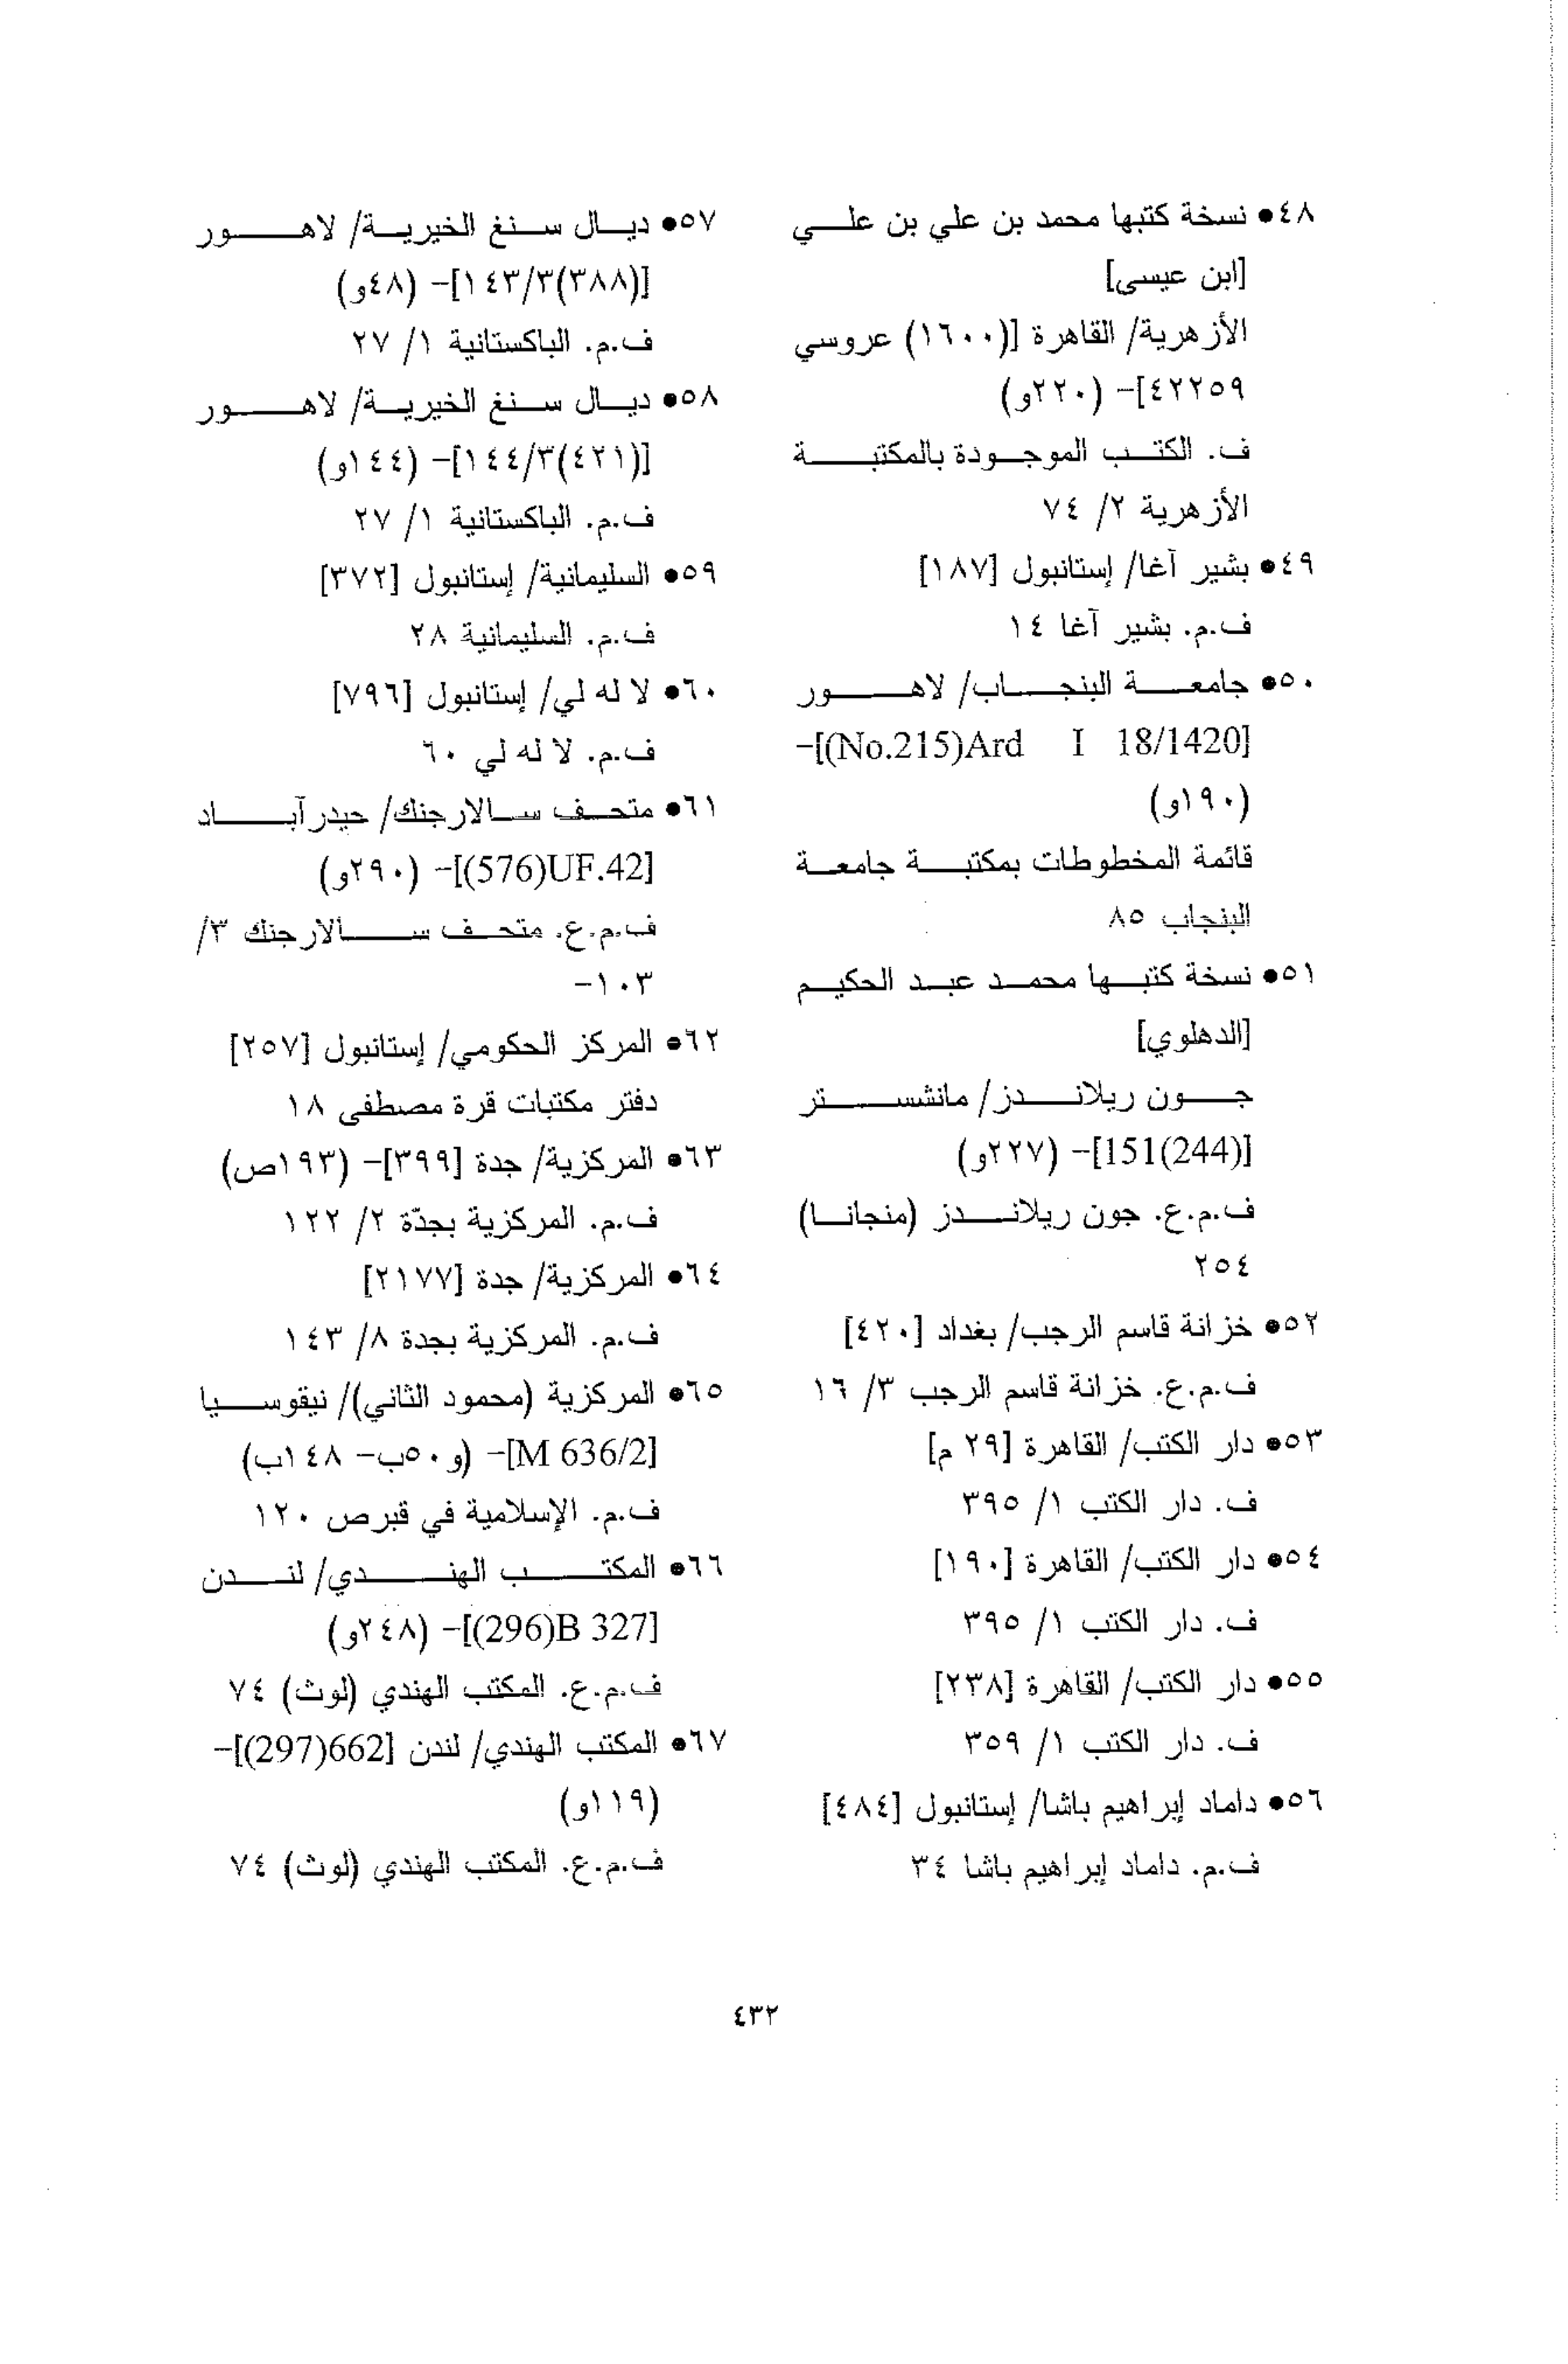 ٤٨● نسخة كتبها محمد بن علي بن علي
[ابن عيسى]
الأزهرية/ القاهرة [(١٦٠٠) عروسي
٤٢٢٥٩]- (٢٢٠و)
ف. الكتب الموجودة بالمكتبة
الأزهرية ٢/ ٧٤
٤٩● بشير آغا/ إستانبول [١٨٧]
ف.م. بشير آغا ١٤
٥٠● جامعة البنجاب/ لاهور
[(No.215)Ard I 18/1420]-
(١٩٠و)
قائمة المخطوطات بمكتبة جامعة
البنجاب ٨٥
٥١● نسخة كتبها محمد عبد الحكيم
[الدهلوي]
جون ريلاندز/ مانشستر
[151(244)]- (٢٢٧و)
ف.م.ع. جون ريلاندز (منجانا)
٢٥٤
٥٢● خزانة قاسم الرجب/ بغداد [٤٢٠]
ف.م.ع. خزانة قاسم الرجب ٣/ ١٦
٥٣● دار الكتب/ القاهرة [٢٩ م]
ف. دار الكتب ١/ ٣٩٥
٥٤● دار الكتب/ القاهرة [١٩٠]
ف. دار الكتب ١/ ٣٩٥
٥٥● دار الكتب/ القاهرة [٢٣٨]
ف. دار الكتب ١/ ٣٥٩
٥٦● داماد إبراهيم باشا/ إستانبول [٤٨٤]
ف.م. داماد إبراهيم باشا ٣٤
٥٧● ديال سنغ الخيرية/ لاهور
[(٣٨٨)١٤٣/٣]- (٤٨و)
ف.م. الباكستانية ١/ ٢٧
٥٨● ديال سنغ الخيرية/ لاهور
[(٤٢١)١٤٤/٣]- (١٤٤و)
ف.م. الباكستانية ١/ ٢٧
٥٩● السليمانية/ إستانبول [٣٧٢]
ف.م. السليمانية ٢٨
٦٠● لا له لي/ إستانبول [٧٩٦]
ف.م. لا له لي ٦٠
٦١● متحف سالارجنك/ حيدرآباد
[(576)UF.42]- (٢٩٠و)
ف.م.ع. متحف سالارجنك ٣/
١٠٣-
٦٢● المركز الحكومي/ إستانبول [٢٥٧]
دفتر مكتبات قرة مصطفى ١٨
٦٣● المركزية/ جدة [٣٩٩]- (١٩٣ص)
ف.م. المركزية بجدّة ٢/ ١٢٢
٦٤● المركزية/ جدة [٢١٧٧]
ف.م. المركزية بجدة ٨/ ١٤٣
٦٥● المركزية (محمود الثاني)/ نيقوسيا
[M 636/2]- (و٥٠ب- ١٤٨ب)
ف.م. الإسلامية في قبرص ١٢٠
٦٦● المكتب الهندي/ لندن
[(296)B 327]- (٢٤٨و)
ف.م.ع. المكتب الهندي (لوث) ٧٤
٦٧● المكتب الهندي/ لندن [(297)662]-
(١١٩و)
ف.م.ع. المكتب الهندي (لوث) ٧٤
٤٣٢